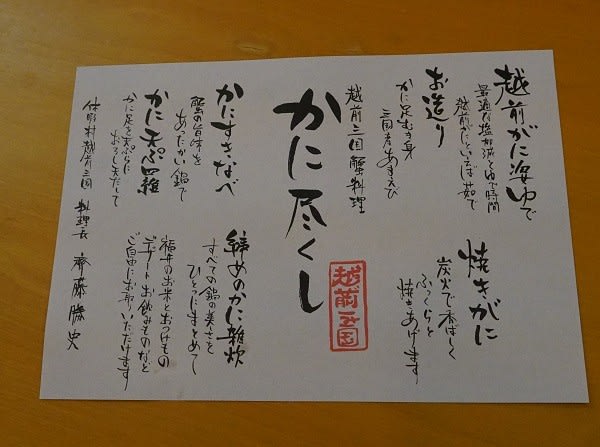 越前がに姿ゆで
最適な塩加減とゆで時間
越前がにといえば茹で
お造り
かに足むき身
三国産甘えび
焼きがに
炭火で香ばしく
ふっくらと
焼きあげます
越前三国 蟹料理
かに尽くし
越前三国
かにすき・なべ
蟹の旨味を
あったかい鍋で
かに天ぷ羅
かに足を天ぷらに
おろし天だしで
締めのかに雑炊
すべての鍋の美味さを
ひとつにまとめて
福井のお米とおつけもの
デザート、お飲みものなど
ご自由にお取りいただけます
休暇村越前三国 料理長 齊藤勝史